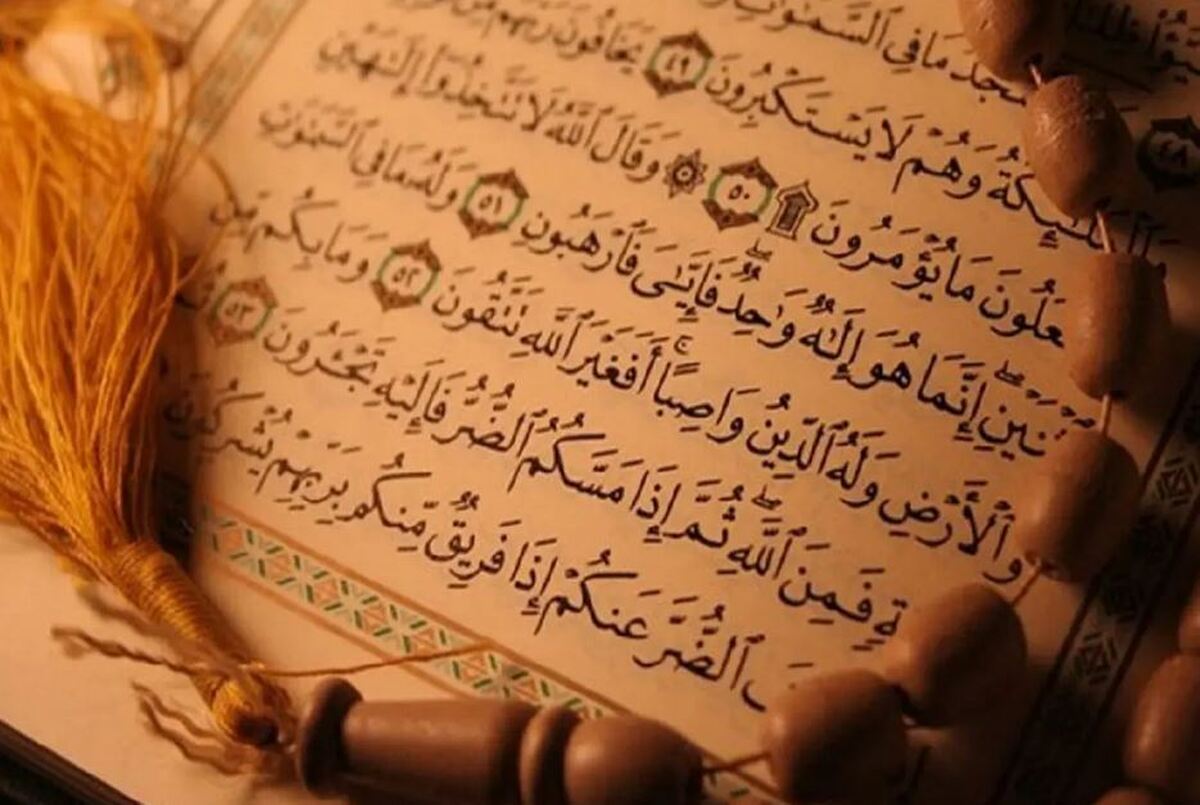 ٤٨ يَسْجُدُ مَا فِي ٱلسَّمَٰوَٰتِ
وَهُمْ لَا يَسْتَكْبِرُونَ ٤٩ يَخَافُونَ رَبَّهُم مِّن
مَا يُؤْمَرُونَ ۩ ٥٠ ۞ وَقَالَ ٱللَّهُ لَا تَتَّخِذُوٓاْ إِلَٰهَيْنِ
إِنَّمَا هُوَ إِلَٰهٌ وَٰحِدٌۖ فَإِيَّٰيَ فَٱرْهَبُونِ ٥١ وَلَهُۥ مَا فِي ٱلسَّمَٰوَٰتِ
وَٱلْأَرْضِ وَلَهُ ٱلدِّينُ وَاصِبًاۚ أَفَغَيْرَ ٱللَّهِ تَتَّقُونَ ٥٢ وَمَا بِكُم مِّن
فَمِنَ ٱللَّهِۖ ثُمَّ إِذَا مَسَّكُمُ ٱلضُّرُّ فَإِلَيْهِ تَجْـَٔرُونَ ٥٣ ثُمَّ
ٱلضُّرَّ عَنكُمْ إِذَا فَرِيقٌ مِّنكُم بِرَبِّهِمْ يُشْرِكُونَ